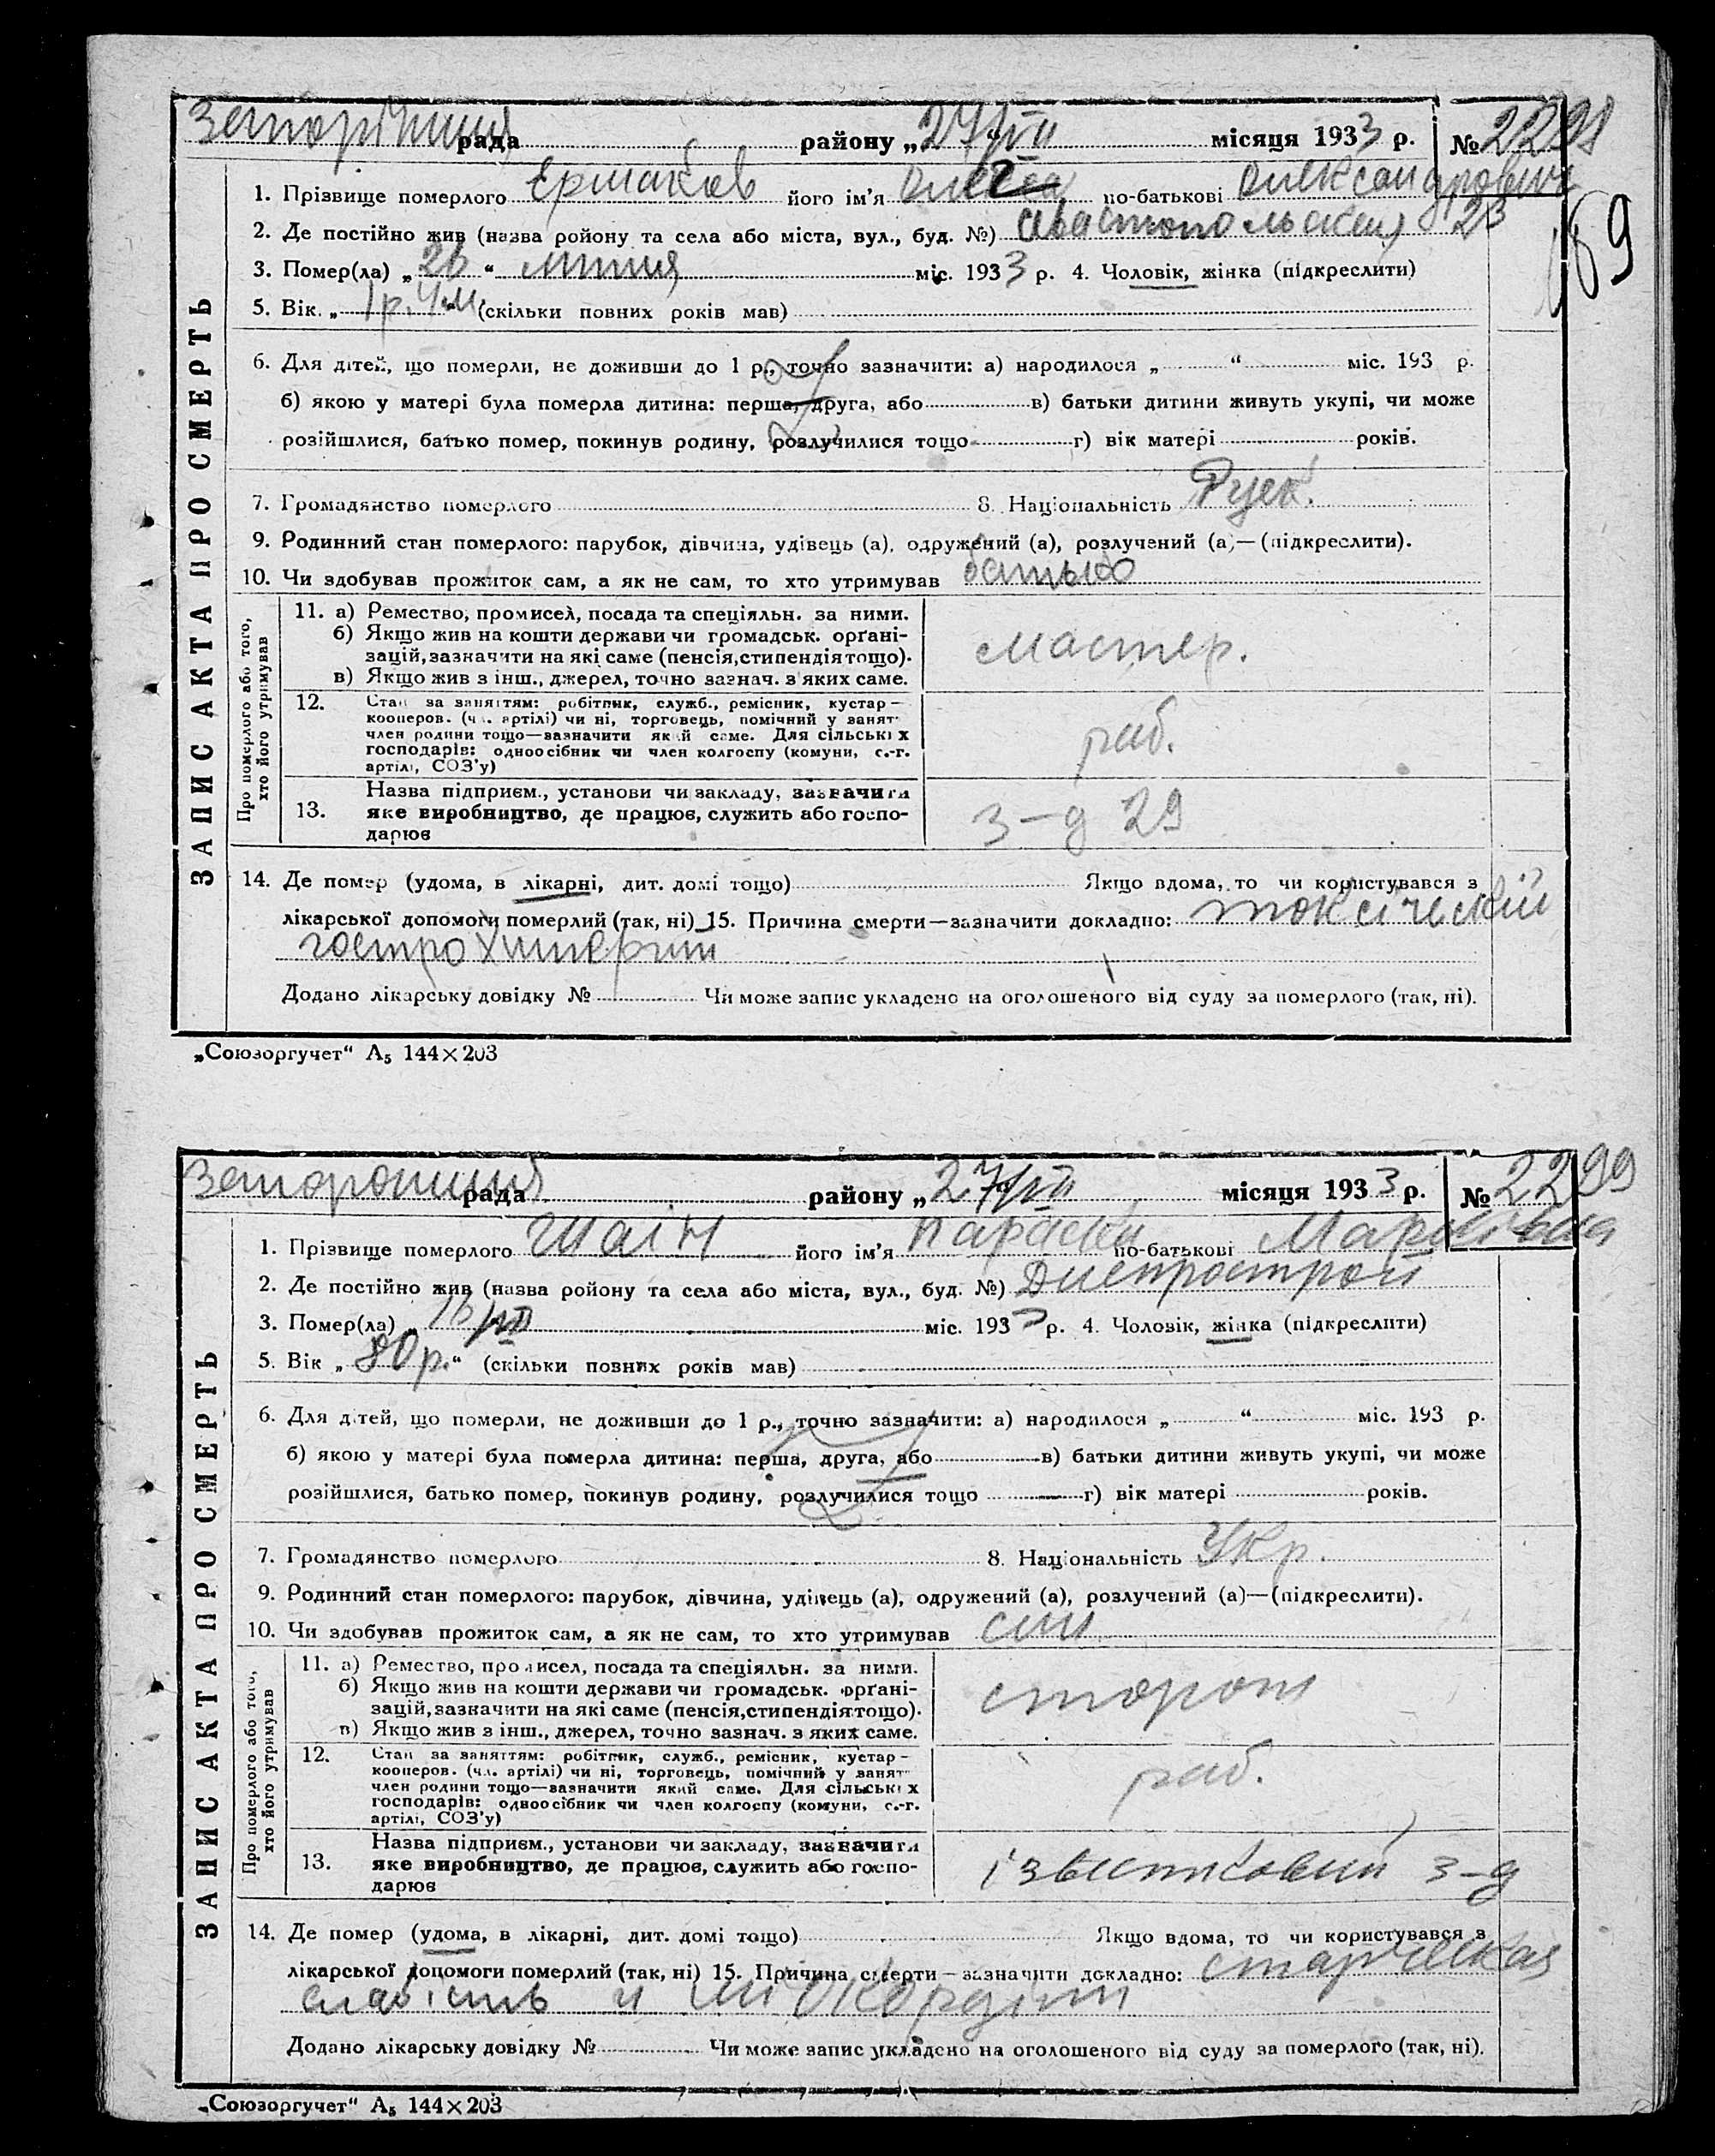 рада району „27/VII“ місяця 1933 р. № 2298
1. Прізвище померлого Ермаков його ім'я по-батькові Олександрович
169
2. Де постійно жив (назва ройону та села або міста, вул., буд. №) 23
3. Помер(ла) „26“ липня міс. 1933 р. 4. Чоловік, жінка (підкреслити)
5. Вік „1 р. 4 м.“ (скільки повних років мав)
6. Для дітей, що померли, не доживши до 1 р., точно зазначити: а) народилося „ “ міс. 193 р.
б) якою у матері була померла дитина: перша, друга, або в) батьки дитини живуть укупі, чи може
розійшлися, батько помер, покинув родину, розлучилися тощо г) вік матері років.
7. Громадянство померлого 8. Національність Руск.
9. Родинний стан померлого: парубок, дівчина, удівець (а), одружений (а), розлучений (а)—(підкреслити).
10. Чи здобував прожиток сам, а як не сам, то хто утримував батько
ЗАПИС АКТА ПРО СМЕРТЬ
Про померлого або того,
хто його утримував
11. а) Ремество, промисел, посада та спеціяльн. за ними.
б) Якщо жив на кошти держави чи громадськ. орґані-
зацій, зазначити на які саме (пенсія, стипендія тощо).
в) Якщо жив з інш., джерел, точно зазнач. з яких саме.
мастер.
12. Стан за заняттям: робітник, служб., ремісник, кустар—
кооперов. (чл. артілі) чи ні, торговець, помічний у занят
член родини тощо—зазначити який саме. Для сільських
господарів: одноосібник чи член колгоспу (комуни, с.-г.
артілі, СОЗ'у)
раб.
13. Назва підприєм., установи чи закладу, зазначити
яке виробництво, де працює, служить або госпо-
дарює
з-д 29
14. Де помер (удома, в лікарні, дит. домі тощо) Якщо вдома, то чи користувався з
лікарської допомоги померлий (так, ні) 15. Причина смерти—зазначити докладно: токсіческій
Додано лікарську довідку № Чи може запис укладено на оголошеного від суду за померлого (так, ні).
„Союзоргучет“ А₅ 144×203
рада району „27/VII“ місяця 1933 р. № 2299
1. Прізвище померлого його ім'я по-батькові
2. Де постійно жив (назва ройону та села або міста, вул., буд. №) Днепрострой
3. Помер(ла) „ міс. 193 р. 4. Чоловік, жінка (підкреслити)
5. Вік „80 р.“ (скільки повних років мав)
6. Для дітей, що померли, не доживши до 1 р., точно зазначити: а) народилося „ “ міс. 193 р.
б) якою у матері була померла дитина: перша, друга, або в) батьки дитини живуть укупі, чи може
розійшлися, батько помер, покинув родину, розлучилися тощо г) вік матері років.
7. Громадянство померлого 8. Національність Укр.
9. Родинний стан померлого: парубок, дівчина, удівець (а), одружений (а), розлучений (а)—(підкреслити).
10. Чи здобував прожиток сам, а як не сам, то хто утримував син
ЗАПИС АКТА ПРО СМЕРТЬ
Про померлого або того,
хто його утримував
11. а) Ремество, промисел, посада та спеціяльн. за ними.
б) Якщо жив на кошти держави чи громадськ. орґані-
зацій, зазначити на які саме (пенсія, стипендія тощо).
в) Якщо жив з інш., джерел, точно зазнач. з яких саме.
сторож
12. Стан за заняттям: робітник, служб., ремісник, кустар—
кооперов. (чл. артілі) чи ні, торговець, помічний у занят
член родини тощо—зазначити який саме. Для сільських
господарів: одноосібник чи член колгоспу (комуни, с.-г.
артілі, СОЗ'у)
раб.
13. Назва підприєм., установи чи закладу, зазначити
яке виробництво, де працює, служить або госпо-
дарює
з-д
14. Де помер (удома, в лікарні, дит. домі тощо) Якщо вдома, то чи користувався з
лікарської допомоги померлий (так, ні) 15. Причина смерти—зазначити докладно: старческая
слабість и міокардіт
Додано лікарську довідку № Чи може запис укладено на оголошеного від суду за померлого (так, ні).
„Союзоргучет“ А₅ 144×203